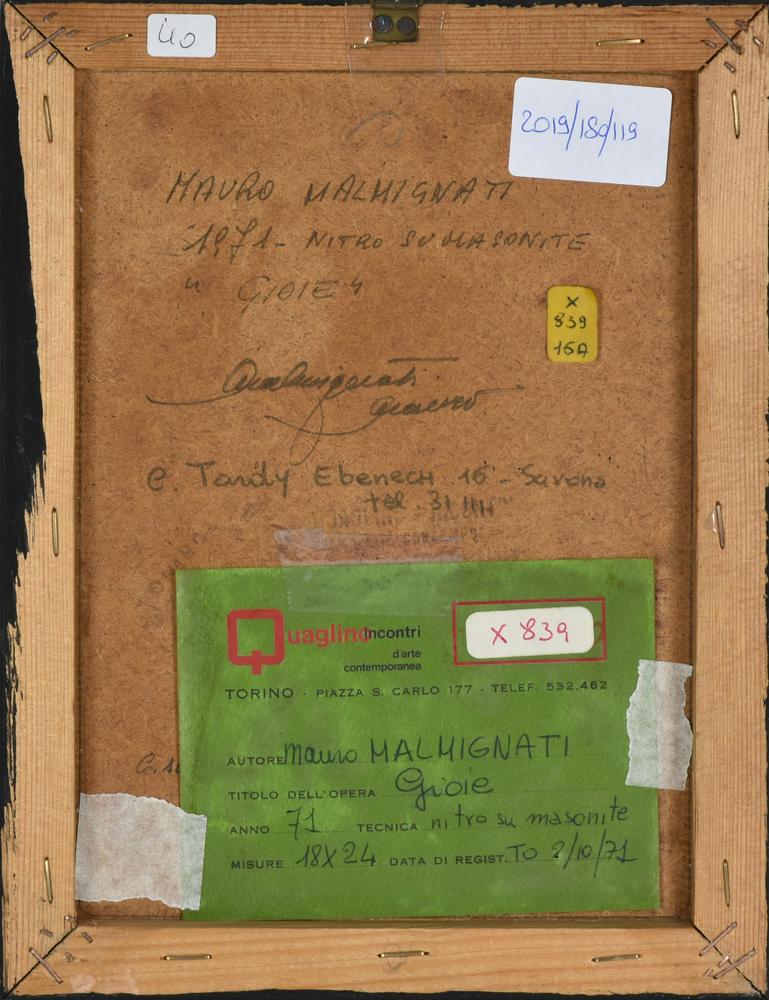 40
2019/180/119
MAURO MALMIGNATI
1971 - NITRO SU MASONITE
"GIOIE"
X
839
16A
Malmignati
Mauro
Savona
tel. 31
Quaglino Incontri
d'arte
contemporanea
X 839
TORINO · PIAZZA S. CARLO 177 · TELEF. 532.462
AUTORE Mauro MALMIGNATI
TITOLO DELL'OPERA Gioie
ANNO 71 TECNICA nitro su masonite
MISURE 18X24 DATA DI REGIST. TO 2/10/71